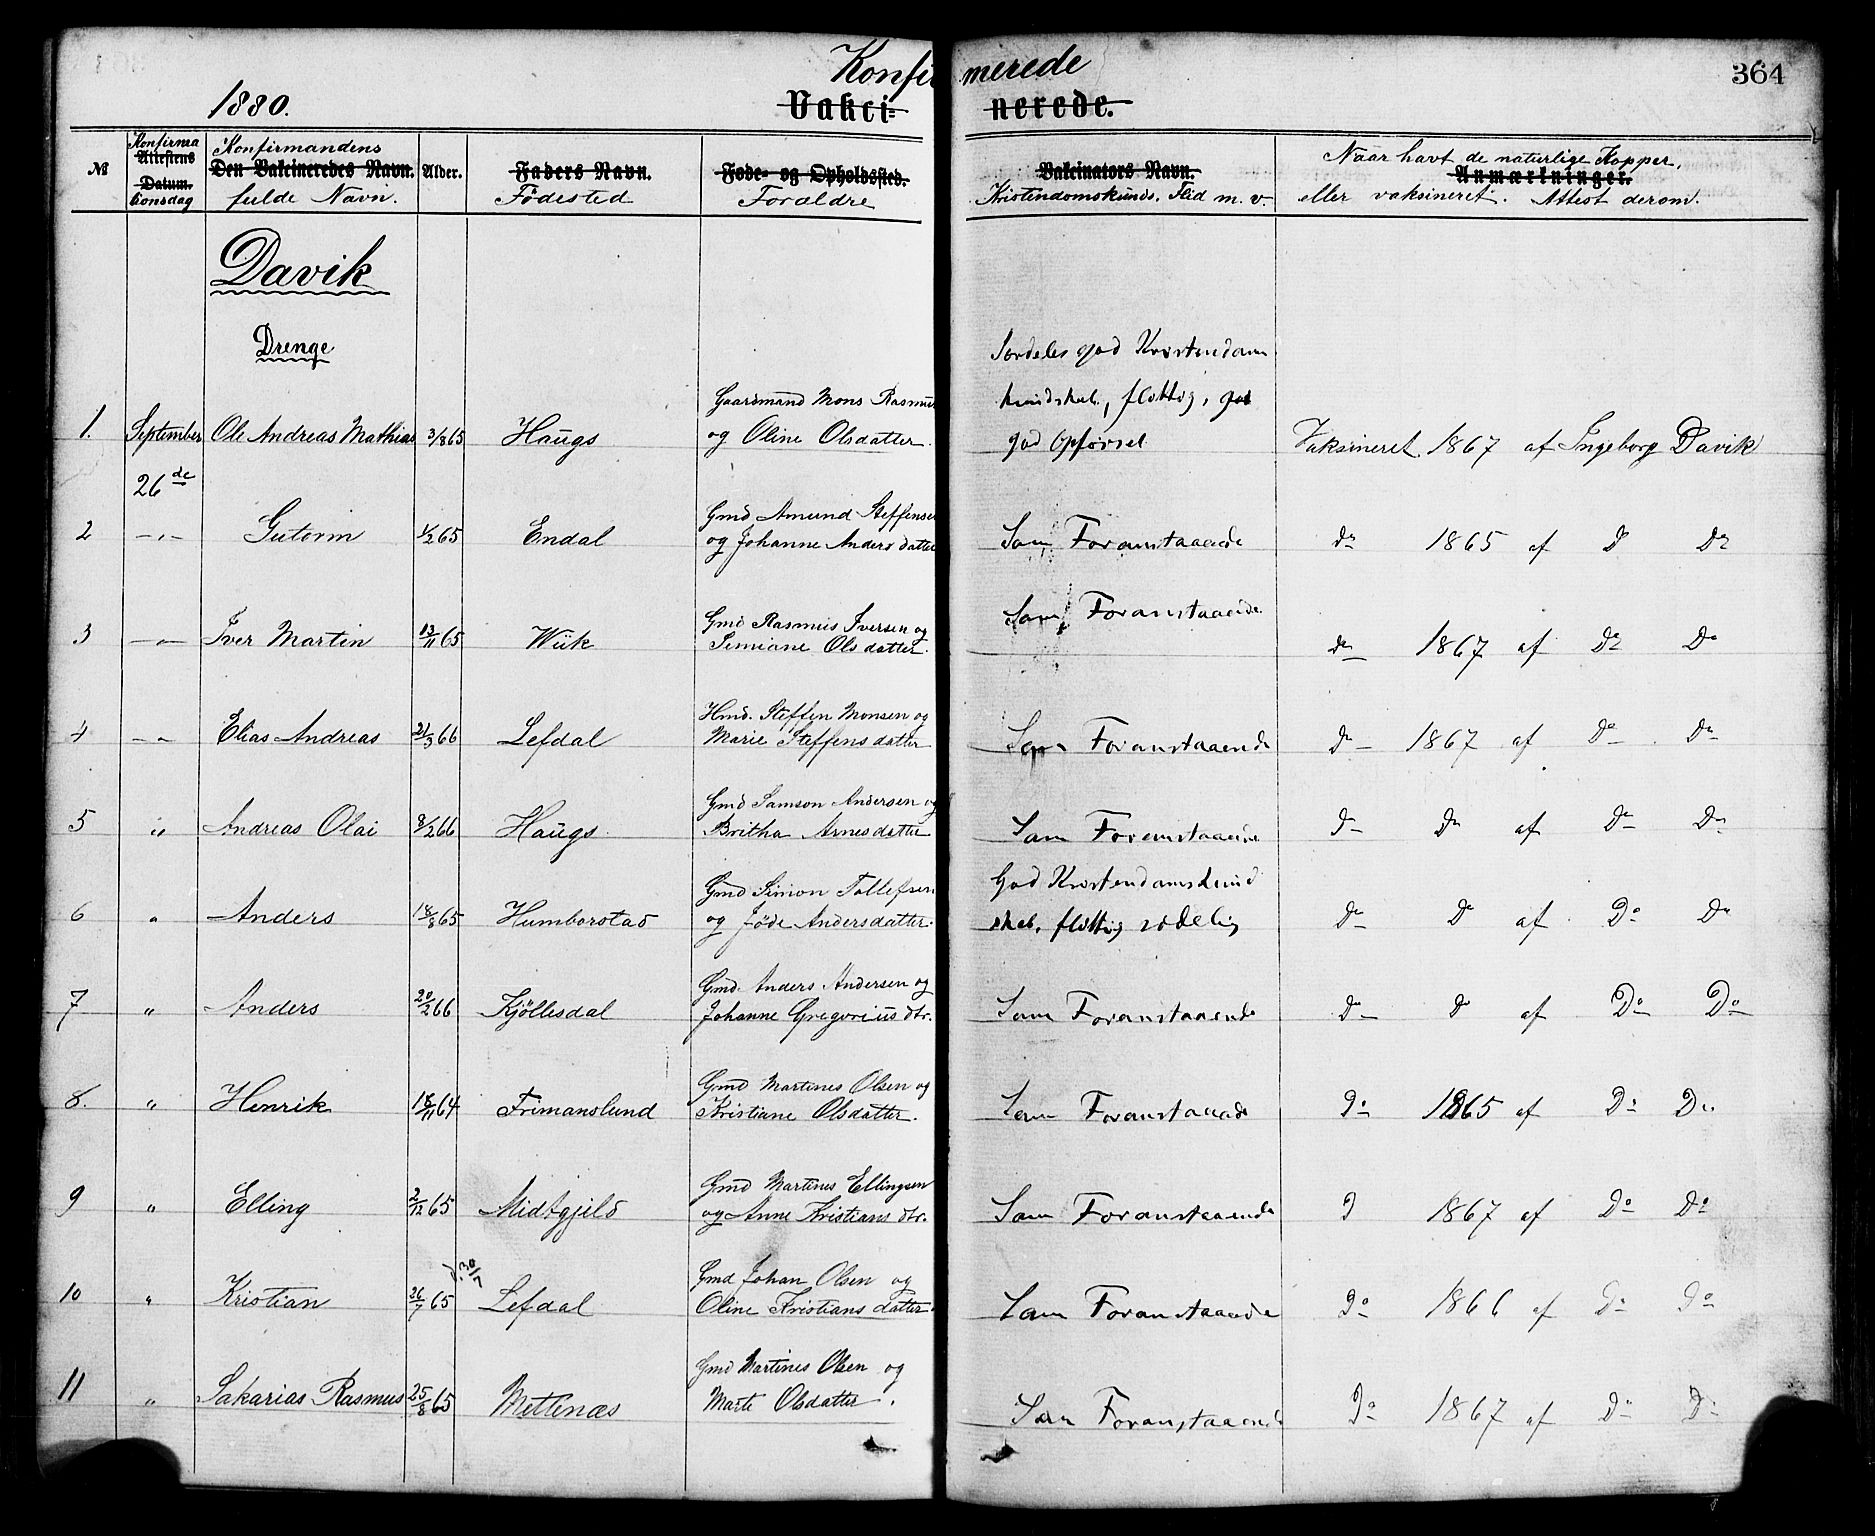 Konfirmerede
364
1880.
Vakcinerede.
№ Konfirma Attestens Datum. tionsdag Konfirmandens Den Vakcineredes Navn. fulde Navn. Alder. Faders Navn. Födested Føde- og Opholdssted. Forældre Vakcinators Navn. Kristendomskunds. Flid m. v. Naar havt de naturlige Kopper, Anmærkninger. eller vaksineret. Attest derom.
Davik
Drenge
Særdeles god Kristendom
kundskab, flittig, god
Gaardmand Mons Rasmus
1. September Ole Andreas Mathias 3/8 65 Haugs og Oline Olsdatter. god Opførsel Vaksineret 1867 af Ingeborg Davik
26de
Gmd Amund Steffensen
2 -„- Gutorm 1/2 65 Endal og Johanne Andersdatter Som Foranstaaende Do 1865 af D Do
Gmd Rasmus Iversen og Som Foranstaaende
3 -„- Iver Martin 13/11 65 Wiik Simiane Olsdatter. do 1867 af Do Do
Hmd. Steffen Monsen og
4 -„- Elias Andreas 21/3 66 Lefdal Marie Steffensdatter Som Foranstaaende Do 1867 af Do Do
Gmd Samson Andersen og
5 „ Andreas Olai 8/2 66 Haugs Britha Arnesdatter Som Foranstaaende Do Do af Do Do
Gmd Simon Tollefsen God Kristendomskund
6 „ Anders 18/8 65 Humborstad og Jøde Andersdatter. skab, flittig, sædelig Do Do af Do Do
Gmd. Anders Andersen og
7 „ Anders 20/2 66 Kjöllesdal Johanne Gregoriusdtr. Som Foranstaaende Do D af Do Do
Gmd Martines Olsen og
8. „ Henrik 18/11 64 Frimanslund Kristiane Olsdatter. Som Foranstaaende Do 1865 af Do Do
Gmd Martines Ellingsen
9 „ Elling 2/12 65 Midtgjeld og Anne Kristiansdtr. Som Foranstaaende D 1867 af Do Do
d. 30/7 Gmd Johan Olsen og
10 „ Kristian 26/7 65 Lefdal Oline Kristiansdatter Som Foranstaaende Do 1866 af Do Do
Gmd Martines Olsen og
11 „ Sakarias Rasmus 25/8 65 Mettenæs Marte Olsdatter. Som Foranstaaende Do 1867 af Do Do